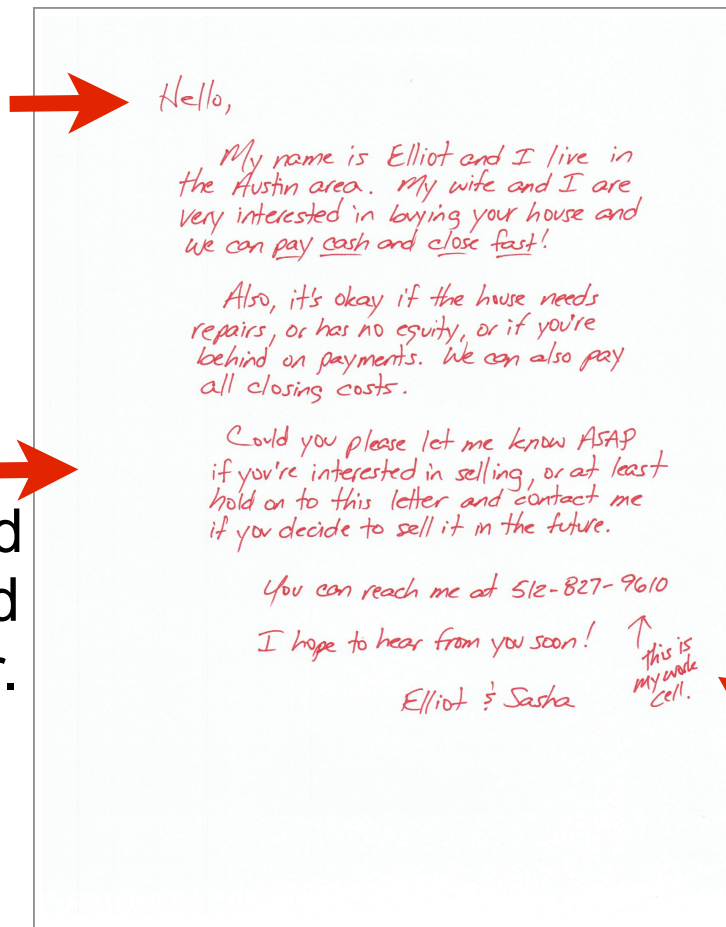 Hello,
My name is Elliot and I live in
the Austin area. My wife and I are
very interested in buying your house and
we can pay cash and close fast!
Also, it's okay if the house needs
repairs, or has no equity, or if you're
behind on payments. We can also pay
all closing costs.
Could you please let me know ASAP
if you're interested in selling, or at least
hold on to this letter and contact me
if you decide to sell it in the future.
You can reach me at 512-827-9610
I hope to hear from you soon!
↑
this is
my work
cell.
Elliot & Sasha